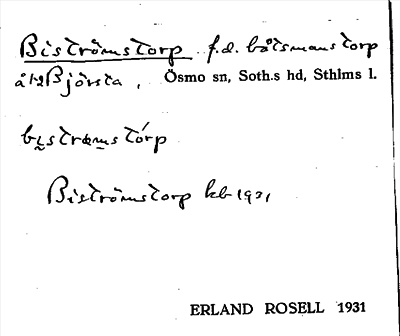 Biströmstorp f.d. båtsmanstorp
å 1:2 Björsta, Ösmo sn, Soth.s hd, Sthlms l.
Biströmstorp kb 1931
ERLAND ROSELL 1931